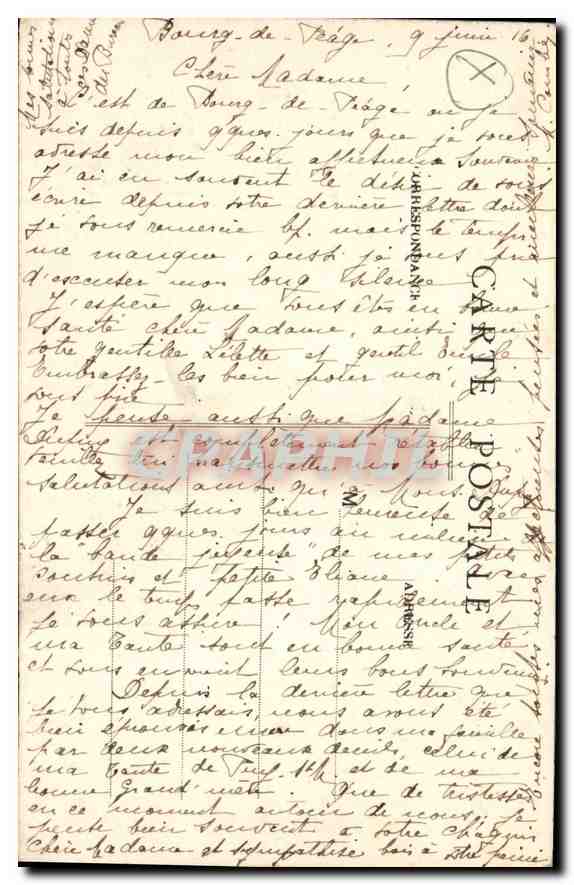 Bourg-de-Péage, 9 juin 16
Chère Madame,
C'est de Bourg-de-Péage où je
suis depuis qques jours que je vous
adresse mon bien affectueux souvenir
J'ai eu souvent le désir de vous
écrire depuis votre dernière lettre dont
je vous remercie bp. mais le temps
me manque, aussi je vous prie
d'excuser mon long silence
J'espère que vous êtes en bonne
santé chère Madame, ainsi que
votre gentille Lélette et gentil
Embrassez-les bien pour moi, je
vous prie
Je pense aussi que Madame
est complètement rétablie
veuillez lui transmettre nos bonnes
salutations ainsi qu'à Mons.
Je suis bien heureuse de
passer qques jours au milieu de
la "bande joyeuse" de mes petits
cousins et petite Eliane avec
eux le temps passe rapidement
je vous assure! Mon oncle et
ma tante sont en bonne santé
et vous envoient leurs bons souvenirs
Depuis la dernière lettre que
je vous adressais, nous avons été
bien éprouvés encore dans ma famille
par deux nouveaux deuils, celui de
ma tante de et de ma
bonne Grand'mère. Que de tristesses
en ce moment autour de nous. Je
pense bien souvent à votre chagrin
Chère Madame et sympathise bois à votre peine
Encore toutes mes affectueuses pensées et
Mes bonnes
salutations
à toute
CARTE POSTALE
CORRESPONDANCE
ADRESSE
M
CPAPHIL